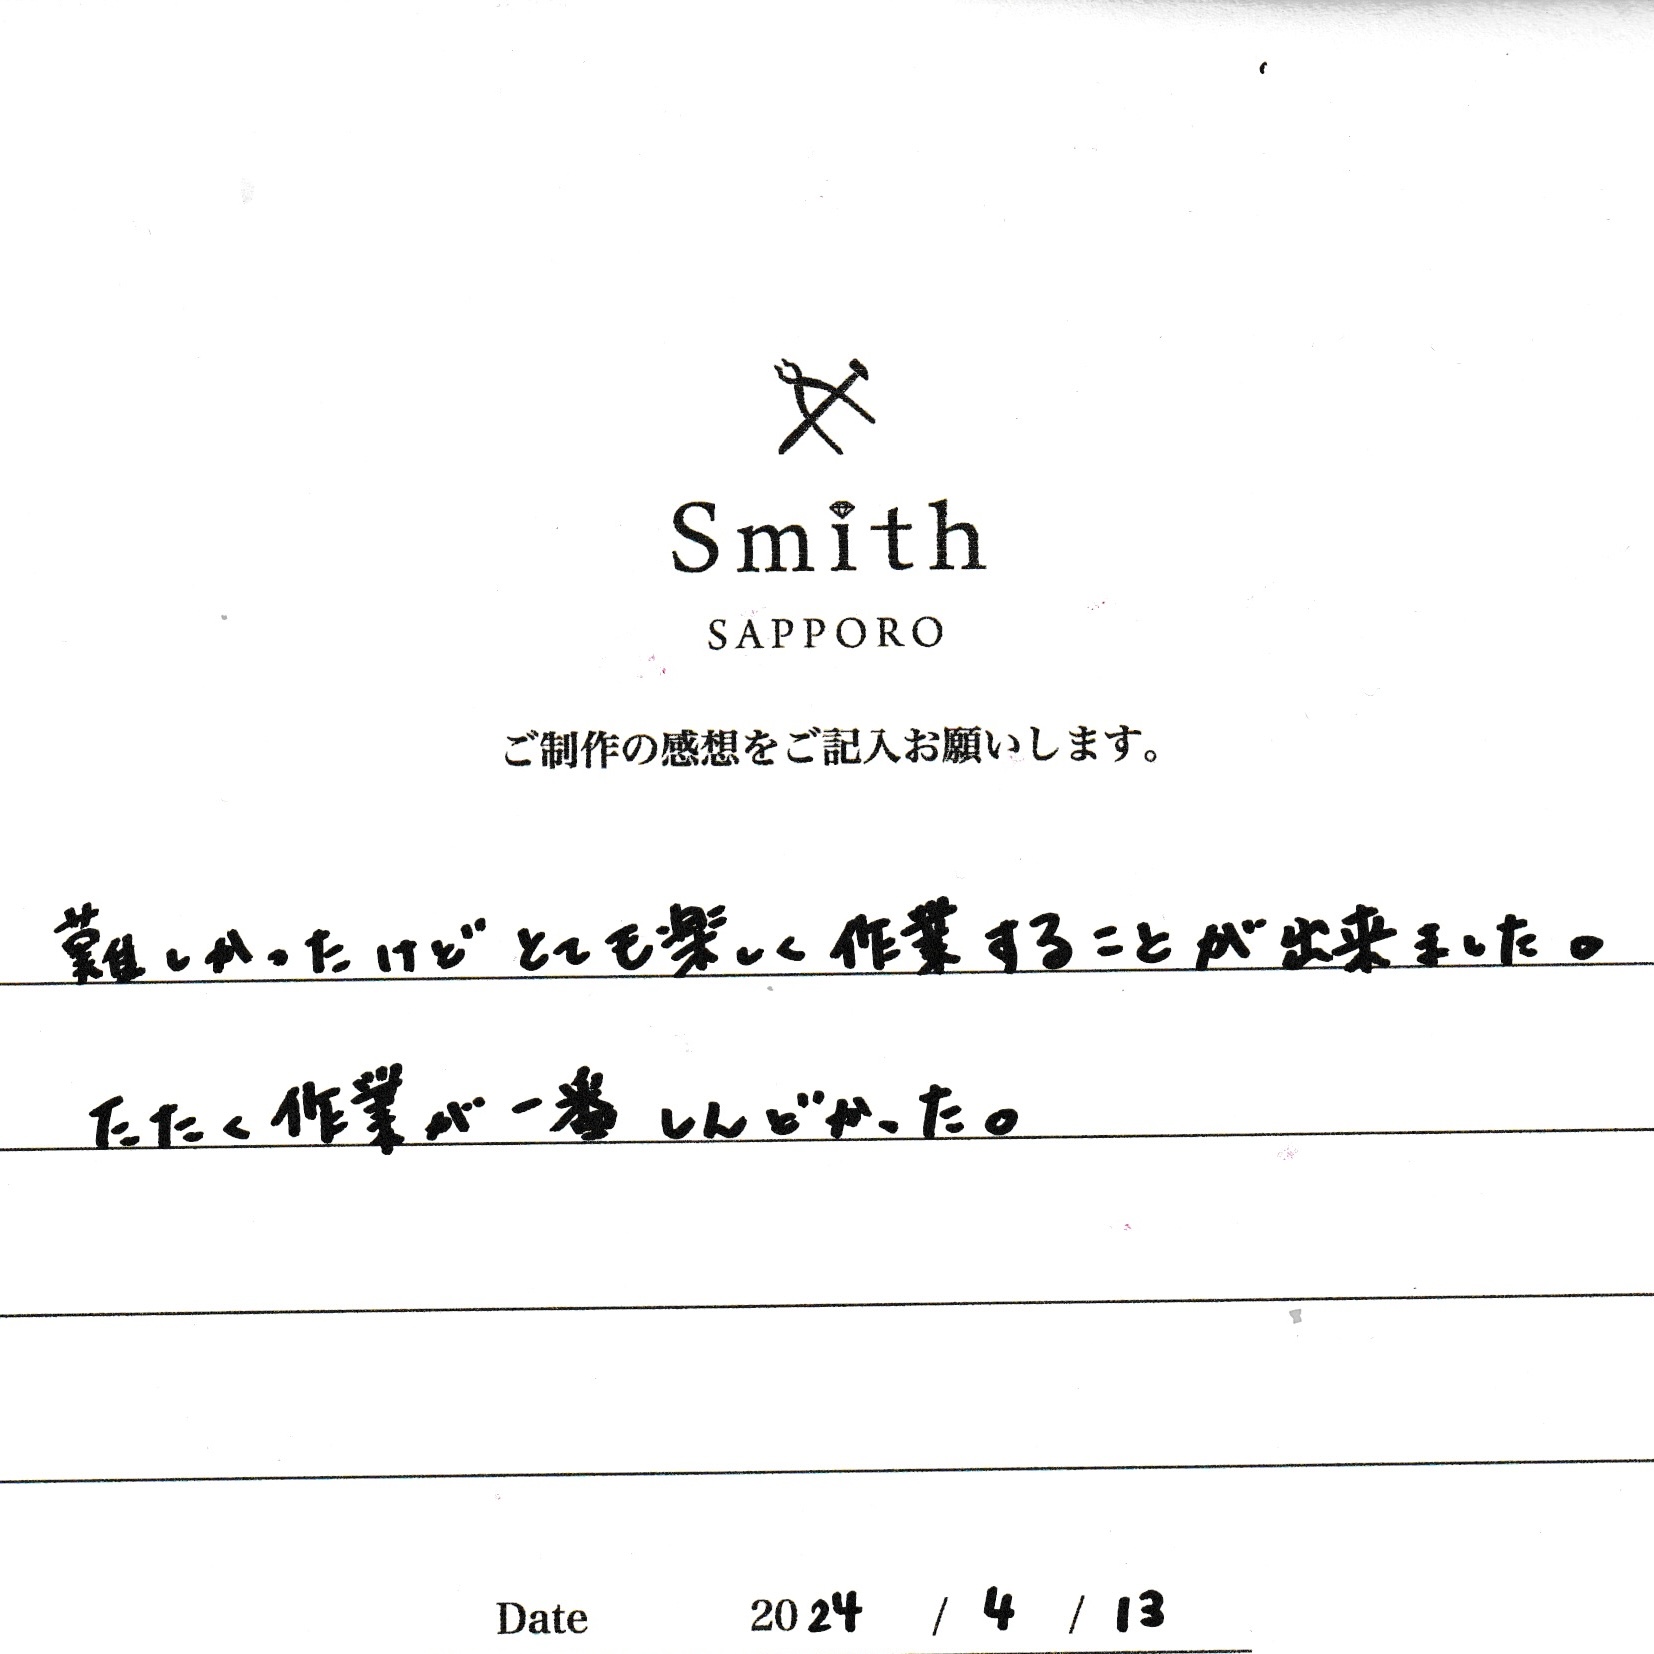 Smith
SAPPORO
ご制作の感想をご記入お願いします。
難しかったけどとても楽しく作業することが出来ました。
たたく作業が一番しんどかった。
Date 2024 / 4 / 13